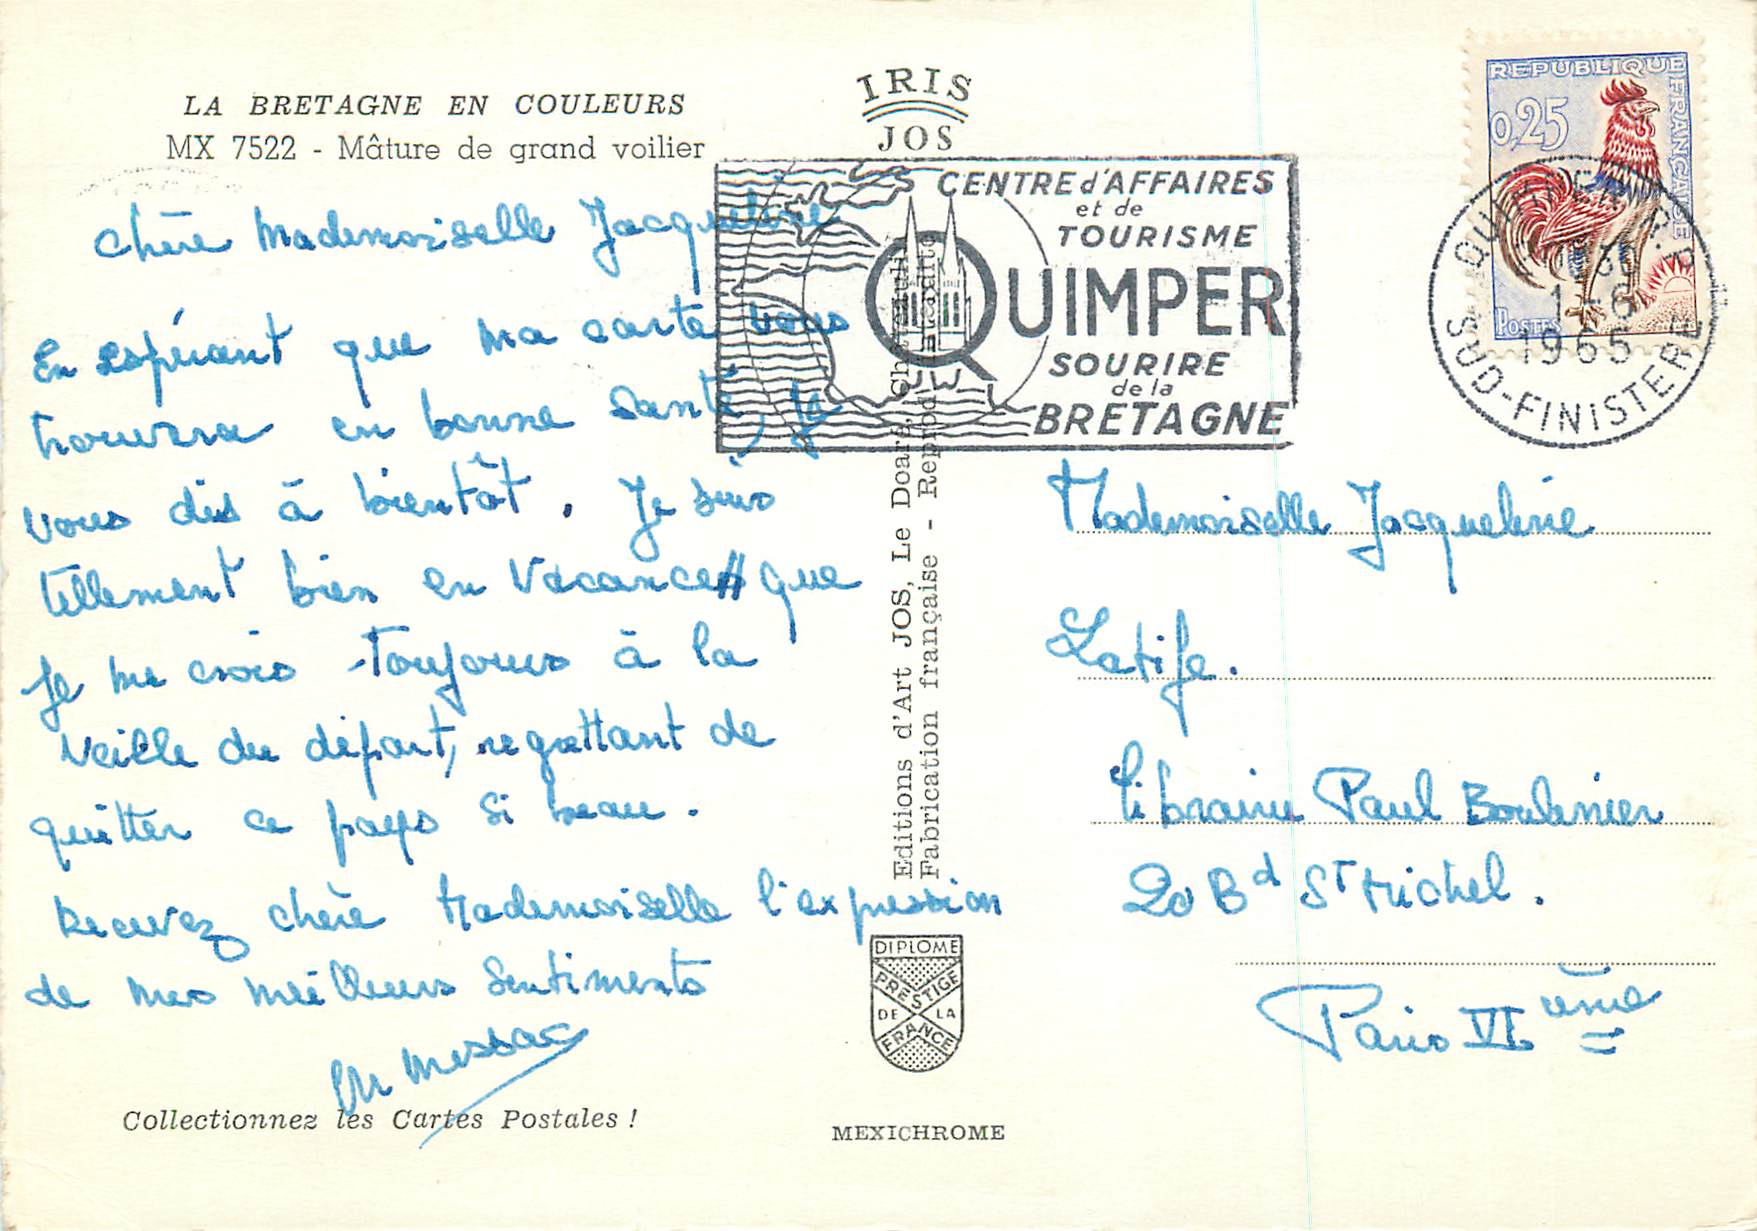 LA BRETAGNE EN COULEURS
MX 7522 - Mâture de grand voilier
IRIS
JOS
chère Mademoiselle Jacqueline
En espérant que ma carte vous
trouvera en bonne santé, je
vous dis à bientôt. Je suis
tellement bien en vacances que
je me crois toujours à la
veille du départ, regrettant de
quitter ce pays si beau.
Recevez chère Mademoiselle l'expression
de mes meilleurs sentiments
M Messac
Collectionnez les Cartes Postales !
CENTRE d'AFFAIRES
et de
TOURISME
QUIMPER
SOURIRE
de la
BRETAGNE
JW
REPUBLIQUE FRANÇAISE
0,25
POSTES
QUIMPER R.P.
1-6
1965
SUD-FINISTERE
Editions d'Art JOS, Le Doaré, Châteaulin
Fabrication française - Reprod. interdite
Mademoiselle Jacqueline
Latife.
Librairie Paul Boulinier
20 Bd St Michel.
Paris VI ème
DIPLOME
PRESTIGE
DE LA
FRANCE
MEXICHROME